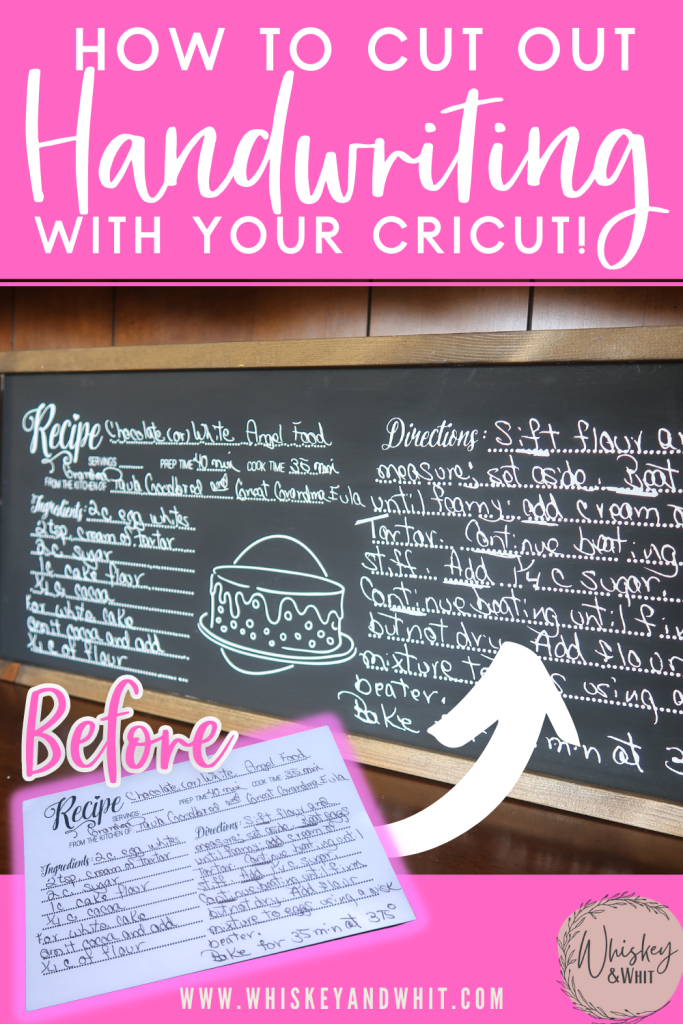 HOW TO CUT OUT
Handwriting
WITH YOUR CRICUT!
Recipe Chocolate (or) White Angel Food
SERVINGS PREP TIME 40 min COOK TIME 35 min
FROM THE KITCHEN OF Grandma and Great Grandma Eula
Ingredients: 2 c. egg whites
2 tsp. cream of tartar
2 c. sugar
1c cake flour
x ½ c. cocoa
For white cake
omit cocoa and add
of flour
Directions: Sift flour a
measure; set aside. Beat
until foamy; add cream o
Tartar. Continue beating
stiff. Add 1¼ c sugar.
Continue beating until fi
but not dry. Add flour
mixture to using a
beater.
Bake min at 3
Before
Recipe Chocolate (or) White Angel Food
SERVINGS PREP TIME 40 min COOK TIME 35 min
FROM THE KITCHEN OF Grandma and Great Grandma Eula
Ingredients: 2 c. egg whites
2 tsp. cream of tartar
2 c. sugar
1c cake flour
cocoa
For white cake
omit cocoa and add
of flour
Directions: Sift flour and
measure; set aside. Beat eggs
until foamy; add cream of
Tartar. Continue beating until
stiff. Add 1¼ c sugar.
Continue beating until firm
but not dry. Add flour
mixture to eggs using a
beater.
Bake for 35 min at 375°
WWW.WHISKEYANDWHIT.COM
Whiskey
&WHIT